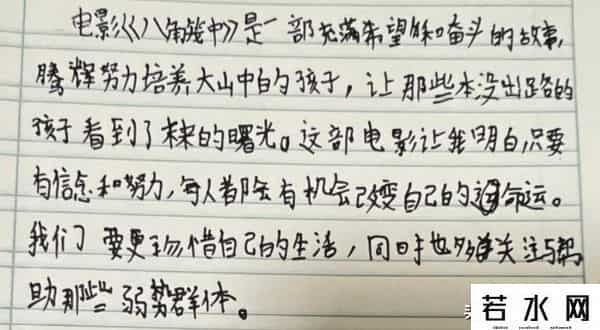 电影《八角笼中》是一部充满希望和奋斗的故事,
腾辉努力培养大山中的孩子，让那些本没出路的
孩子看到了未来的曙光。这部电影让我明白,只要
有信念和努力,每人都会有机会改变自己的命运。
我们要更珍惜自己的生活，同时也多关注与帮
助那些弱势群体。
若水网